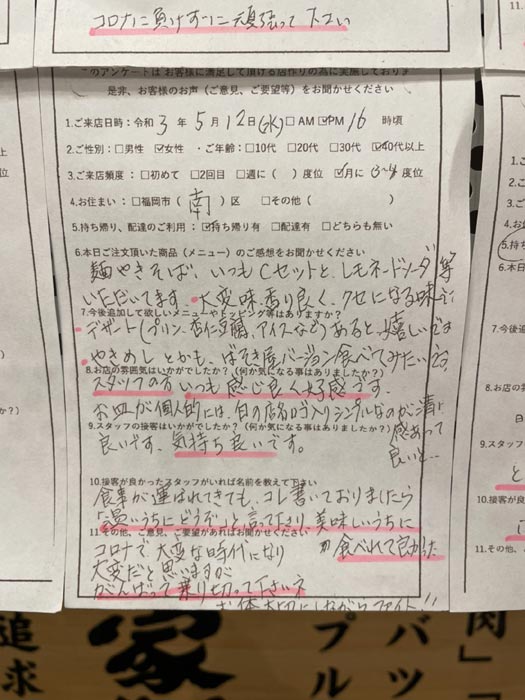 コロナに負けずに頑張って下さい
このアンケートはお客様に満足して頂ける店作りの為に実施しております
是非、お客様のお声（ご意見、ご要望等）をお聞かせください
1.ご来店日時：令和 3 年 5 月 12日(水) □AM ☑PM 16 時頃
2.ご性別：□男性 ☑女性 ・ご年齢：□10代 □20代 □30代 ☑40代以上
3.ご来店頻度：□初めて □2回目 □週に（ ）度位 ☑月に（3~4）度位
4.お住まい：□福岡市（ 南 ）区 □その他（ ）
5.持ち帰り、配達のご利用：☑持ち帰り有 □配達有 □どちらも無い
6.本日ご注文頂いた商品（メニュー）のご感想をお聞かせください
麺やきそば、いつもCセットと、レモネードソーダ等
いただいてます。大変味・香り良く、クセになる味です
7.今後追加して欲しいメニューやトッピング等はありますか？
デザート(プリン、杏仁豆腐、アイスなど)あると、嬉しいです
やきめしとかも、ばそき屋バージョン食べてみたいです。
8.お店の雰囲気はいかがでしたか？（何か気になる事はありましたか？）
スタッフの方いつも感じ良く好感です。
お皿が個人的には、白の店名ロゴ入りシンプルなのが清
感あって
良いと…
9.スタッフの接客はいかがでしたか？（何か気になる事はありましたか？）
良いです、気持ち良いです。
10.接客が良かったスタッフがいれば名前を教えて下さい
食事が運ばれてきても、コレ書いておりましたら
「温いうちにどうぞ」と言って下さり美味しいうちに
食べれて良かった
11.その他、ご意見、ご要望があればお聞かせください
コロナで大変な時代になり
大変だと思いますが
がんばって乗り切って下さいネ
お体大切にしながらファイト!!
追求
家
プル
バツ
肉」